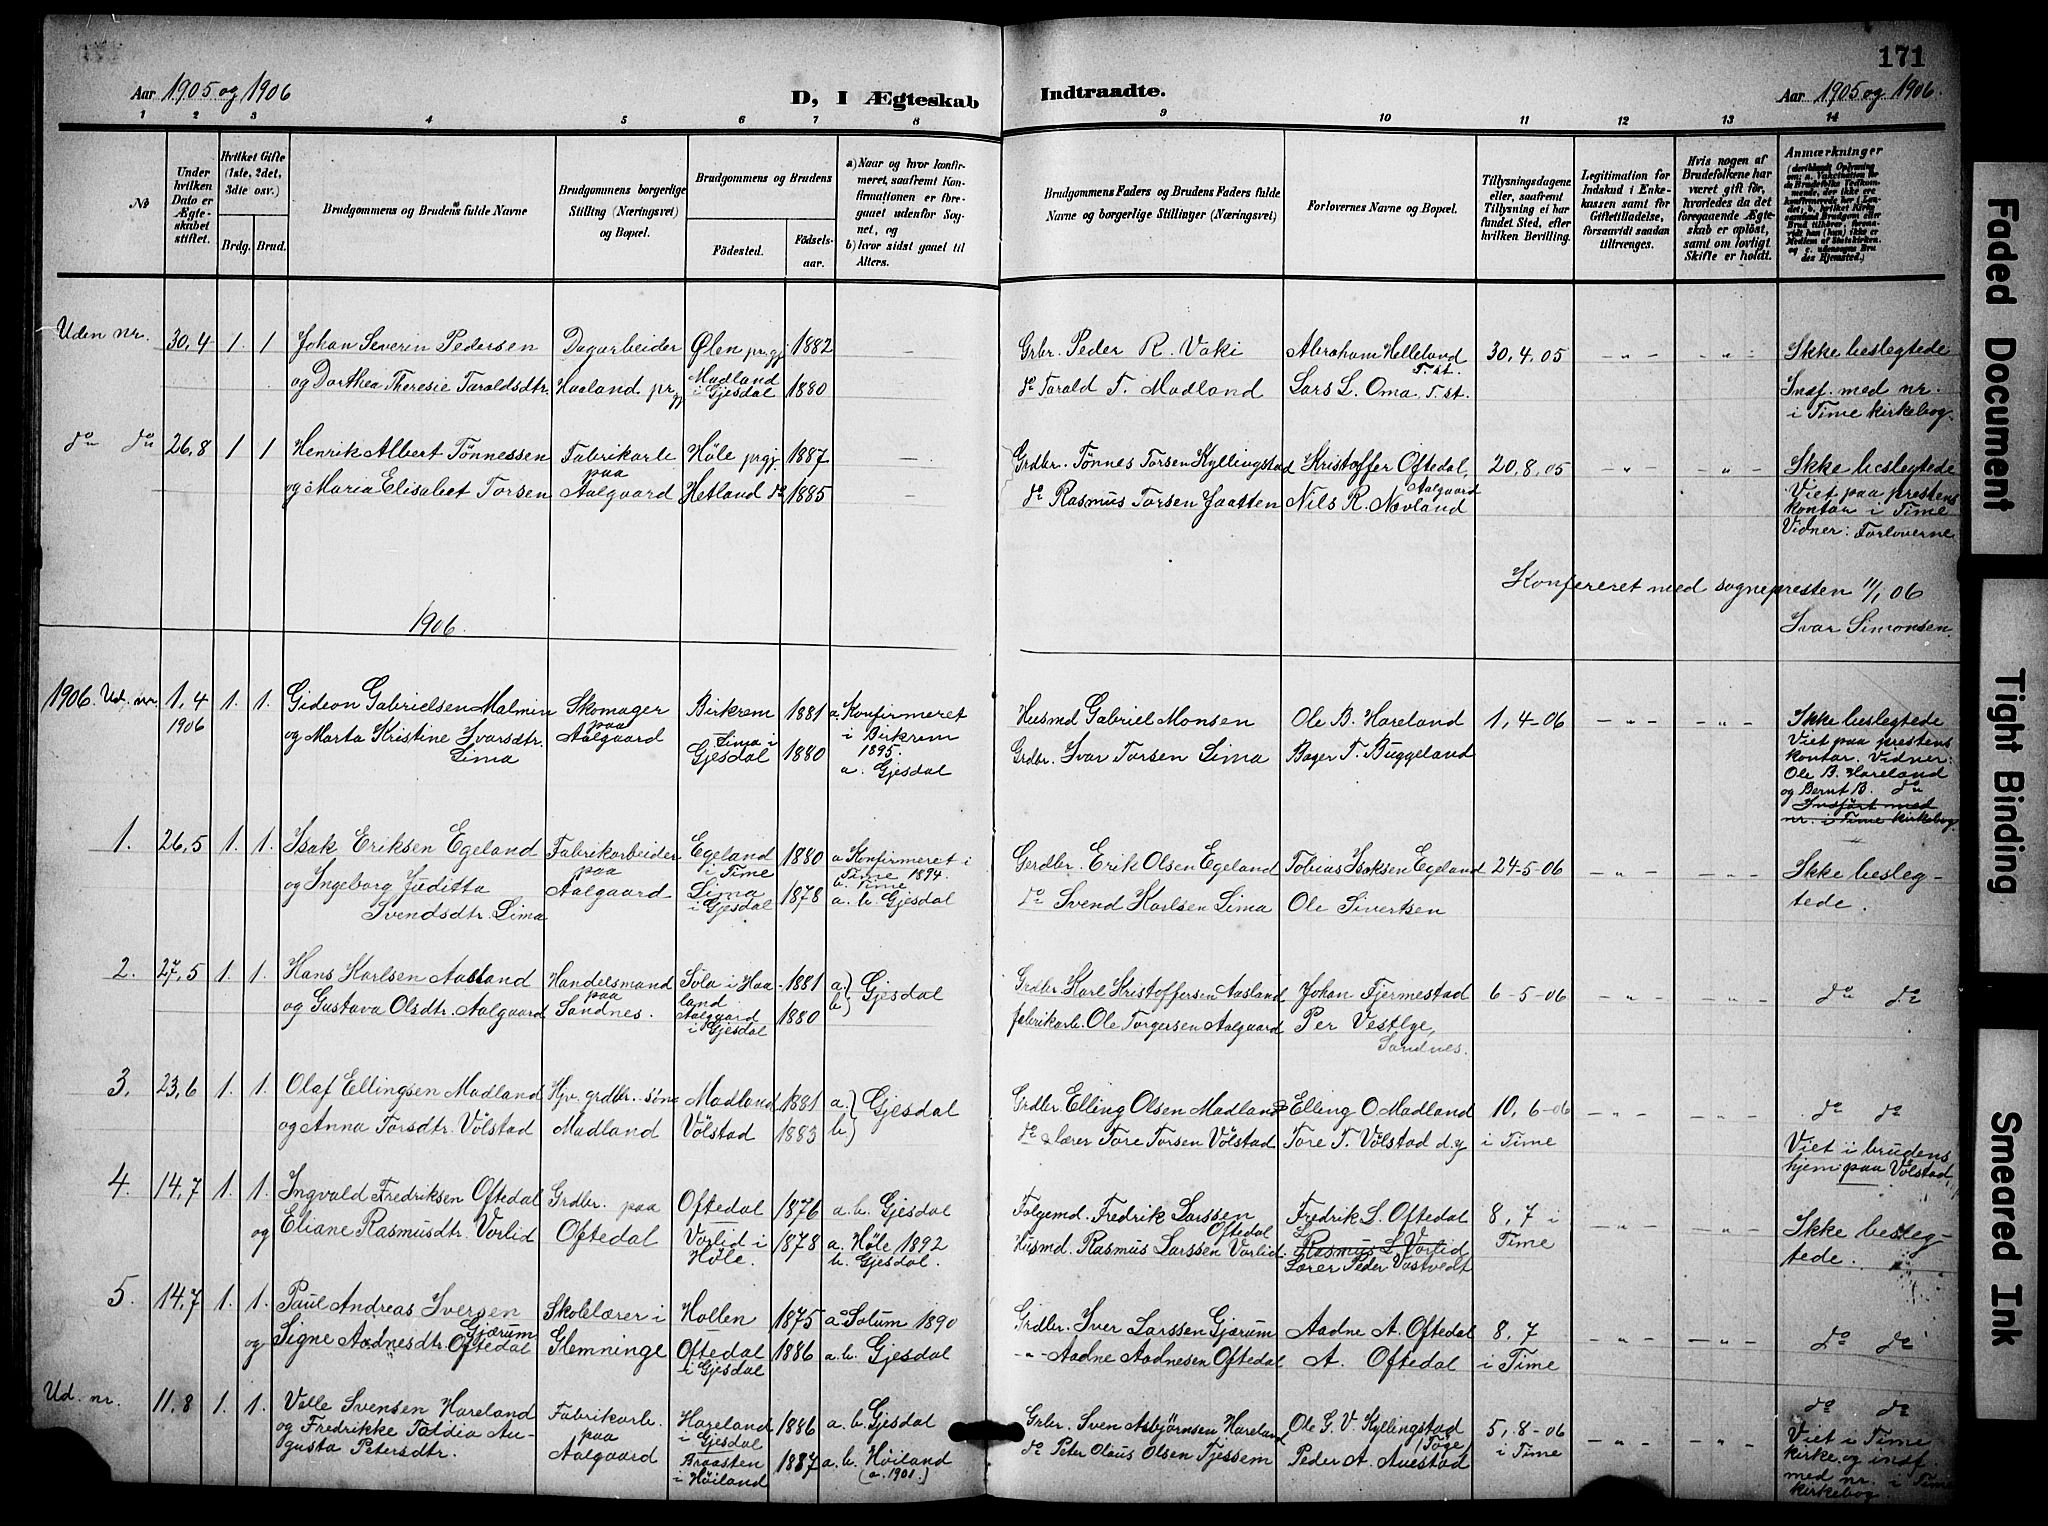 171
Aar 1905 og 1906
D, I Ægteskab Indtraadte.
Aar 1905 og 1906.
1 2 3 4 5 6 7 8 9 10 11 12 13 14
No
Under hvilken Dato er Ægteskabet stiftet.
Hvilket Gifte (1ste, 2det, 3die osv.)
Brdg. Brud.
Brudgommens og Brudens fulde Navne
Brudgommens borgerlige Stilling (Næringsvei) og Bopæl.
Brudgommens og Brudens
Fødested. Fødselsaar.
a) Naar og hvor konfirmeret, saafremt Konfirmationen er foregaaet udenfor Sognet, og
b) hvor sidst gaaet til Alters.
Brudgommens Faders og Brudens Faders fulde Navne og borgerlige Stillinger (Næringsvei)
Forlovernes Navne og Bopæl.
Tillysningsdagene eller, saafremt Tillysning ei har fundet Sted, efter hvilken Bevilling.
Legitimation for Indskud i Enkekassen samt for Giftetilladelse, forsaavidt saadan tiltrænges.
Hvis nogen af Brudefolkene har været gift før, hvorledes da det foregaaende Ægteskab er opløst, samt om lovligt Skifte er holdt.
Anmærkninger
Uden nr. 30,4 1. 1 Johan Severin Pedersen Dagarbeider Ølen pr.gj. 1882 — Grbr. Peder R. Vaki Abraham Helleland T. st. 30,4,05 Ikke beslegtede
og Dorthea Theresie Taraldsdtr. Haaland pr.gj. Madland i Gjesdal 1880 do Tarald T. Madland Lars L. Oma T. st. Indf. med nr. i Time kirkebog.
do do 26,8 1 1 Henrik Albert Tønnessen Fabrikarb. paa Høle prgj. 1887 — Grdbr. Tønnes Torsen Kyllingstad Kristoffer Oftedal, Aalgaard 20,8,05 Ikke beslegtede
og Maria Elisabet Torsen Aalgaard Hetland do 1885 — do Rasmus Torsen Jaatten Nils R. Nevland Viet paa prestens kontor i Time Vidner: Forloverne
Konfereret med sognepresten 11/1 06
1906.
Ivar Simonsen.
1906. Ud. nr. 1,4 1906 1. 1. Gideon Gabrielsen Malmin Skomager paa Birkrem 1881 a. Konfirmeret i Birkrem 1895. Husmd Gabriel Monsen Ole B. Hareland 1,4-06 Ikke beslegtede
og Marta Kristine Ivarsdtr. Lima Aalgaard Lima i Gjesdal 1880 a. Gjesdal Grdbr. Ivar Torsen Lima Bager T. Buggeland Viet paa prestens kontor. Vidner: Ole B. Hareland og Bernt B. do
Indført med nr. i Time kirkebog
1. 26,5 1. 1. Isak Eriksen Egeland Fabrikarbeider paa Egeland i Time 1880 a Konfirmeret i Time 1894. b. Time Gerdbr. Erik Olsen Egeland Tobias Isaksen Egeland 24-5-06 Ikke beslegtede.
og Ingeborg Juditta Svendsdtr. Lima Aalgaard Lima i Gjesdal 1878 a. b. Gjesdal do Svend Karlsen Lima Ole Sivertsen
2. 27,5 1. 1. Hans Karlsen Aasland Handelsmand paa Sola i Haaland 1881 a.) b) Gjesdal Grdbr Karl Kristoffersen Aasland Johan Fjermestad 6-5-06 do do
og Gustava Olsdtr. Aalgaard Sandnes. Aalgaard i Gjesdal 1880 fabrikarb. Ole Torgersen Aalgaard Per Vestlye, Sandnes.
3. 23,6 1. 1. Olaf Ellingsen Madland Hjv. grdbr. søn Madland 1881 a.) b) Gjesdal Grdbr. Elling Olsen Madland Elling O. Madland 10,6-06 do do
og Anna Torsdtr. Vølstad Madland Vølstad 1883 do & lærer Tore Torsen Vølstad Tore T. Vølstad d.y. i Time Viet i brudens hjem paa Vølstad,
4. 14,7 1. 1. Ingvald Fredriksen Oftedal Grdbr. paa Oftedal 1876 a. b. Gjesdal Folgemd. Fredrik Larssen Oftedal Fredrik L. Oftedal 8,7 i Time Ikke beslegtede.
og Eliane Rasmusdtr. Vorlid Oftedal Vorlid i Høle. 1878 a. Høle 1892 b. Gjesdal. Husmd. Rasmus Larssen Vorlid. Rasmus L. Vorlid
Lærer Peder Vastvedt
5. 14,7 1. 1. Paul Andreas Iversen Gjærum Skolelærer i Hollen 1875 a Solum 1890 Grdbr. Iver Larssen Gjærum Aadne A. Oftedal 8,7 do do
og Signe Aadnesdtr. Oftedal Glemninge Oftedal i Gjesdal 1886 a. b. Gjesdal -"- Aadne Aadnesen Oftedal A. Oftedal i Time
Ud. nr. 11,8 1. 1. Velle Svensen Hareland Fabrikarb. paa Hareland i Gjesdal 1886 a. b. Gjesdal Grbr. Sven Asbjørnsen Hareland Ole G. V. Kyllingstad 5,8-06 do do
og Fredrikke Taldia Augusta Petersdtr. Aalgaard Braasten i Høiland 1887 a. b. Høiland (a. 1901.) do Peter Olaus Olsen Tjessem Peder A. Auestad i Time Viet i Time kirke og indf. med nr. i Time kirkebog.
Faded Document
Tight Binding
Smeared Ink